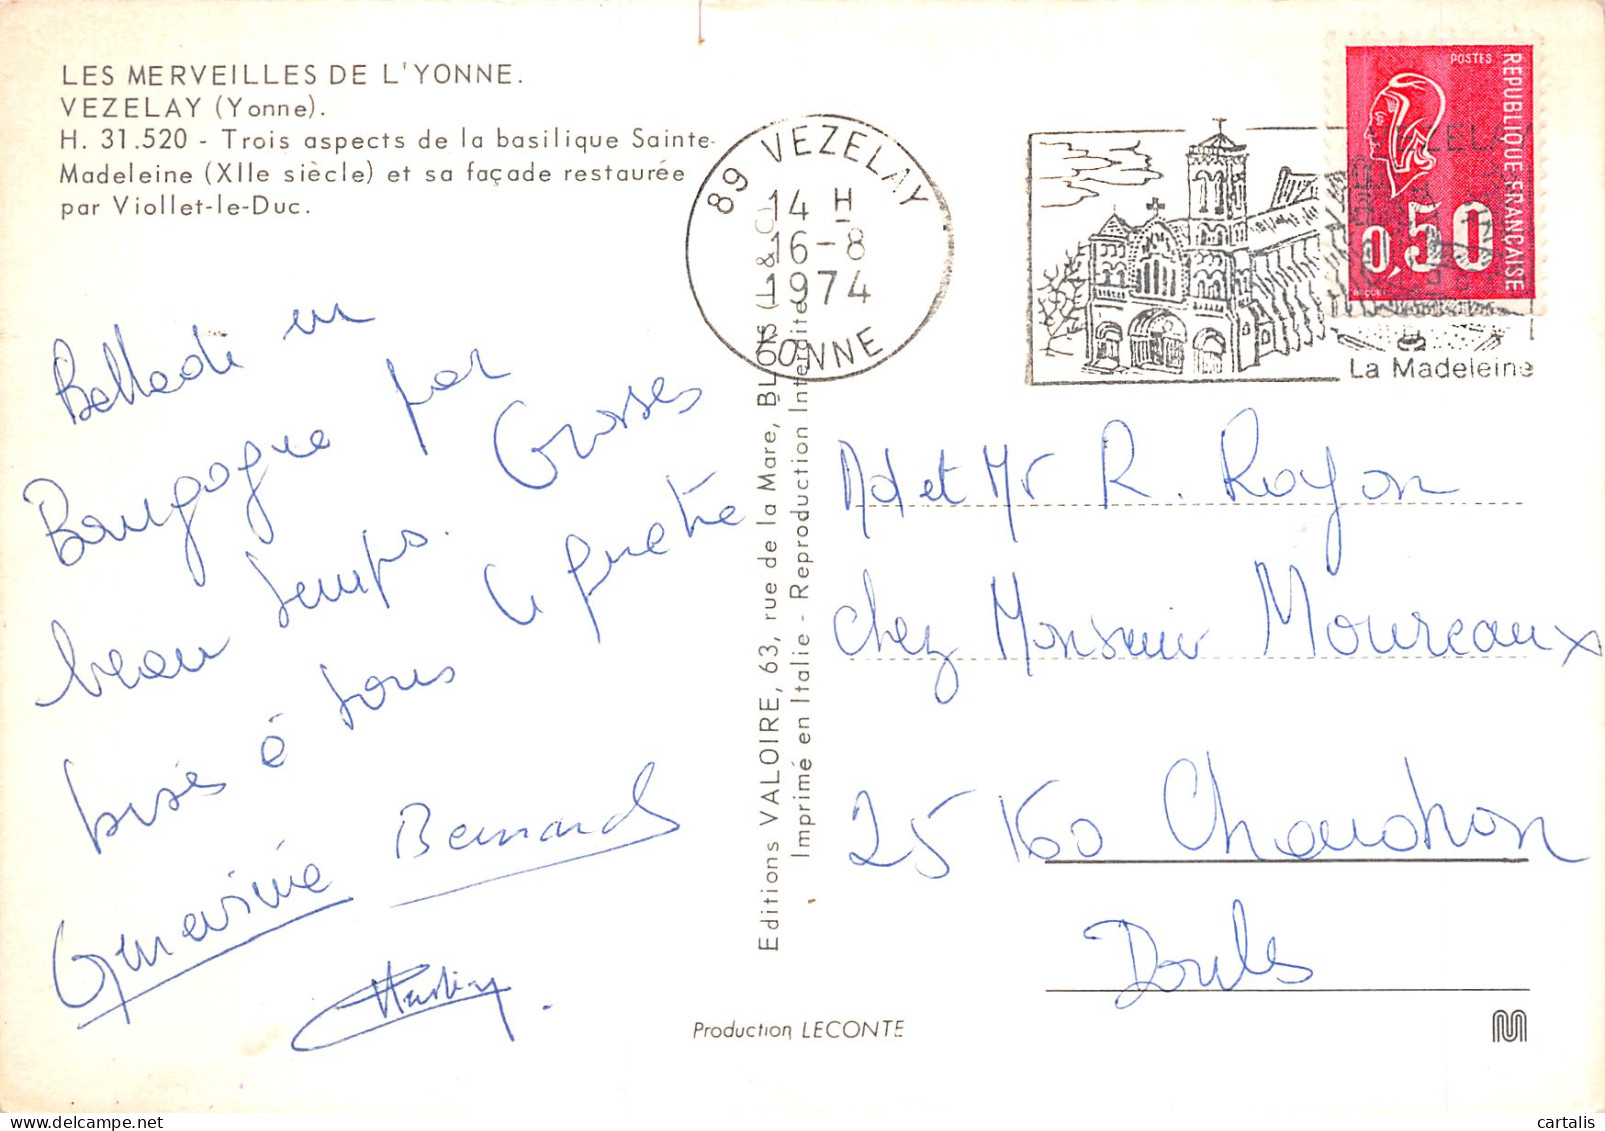 LES MERVEILLES DE L'YONNE.
VEZELAY (Yonne).
H. 31.520 - Trois aspects de la basilique Sainte-
Madeleine (XIIe siècle) et sa façade restaurée
par Viollet-le-Duc.
89 VEZELAY
14 H
16-8
1974
YONNE
VEZELAY
La Madeleine
POSTES
REPUBLIQUE FRANCAISE
0,50
Ballade en
Bourgogne par
beau temps. Grosses
bises à tous le quatre
Geneviève Bernard
Editions VALOIRE, 63, rue de la Mare, BLOIS (L & C)
Imprimé en Italie - Reproduction Interdite
Md et Mr R. Royon
chez Monsieur Moureaux
25160 Chaudron
Doubs
Production LECONTE
cartalis